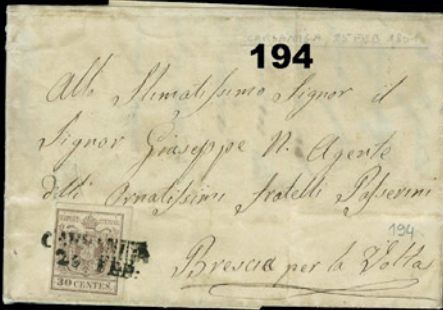 194
Allo Stimatissimo Signor il
Signor Giuseppe N. Agente
delli Ornatissimi fratelli Passerini
194
Brescia per la Volta
25 FEB.
30 CENTES.